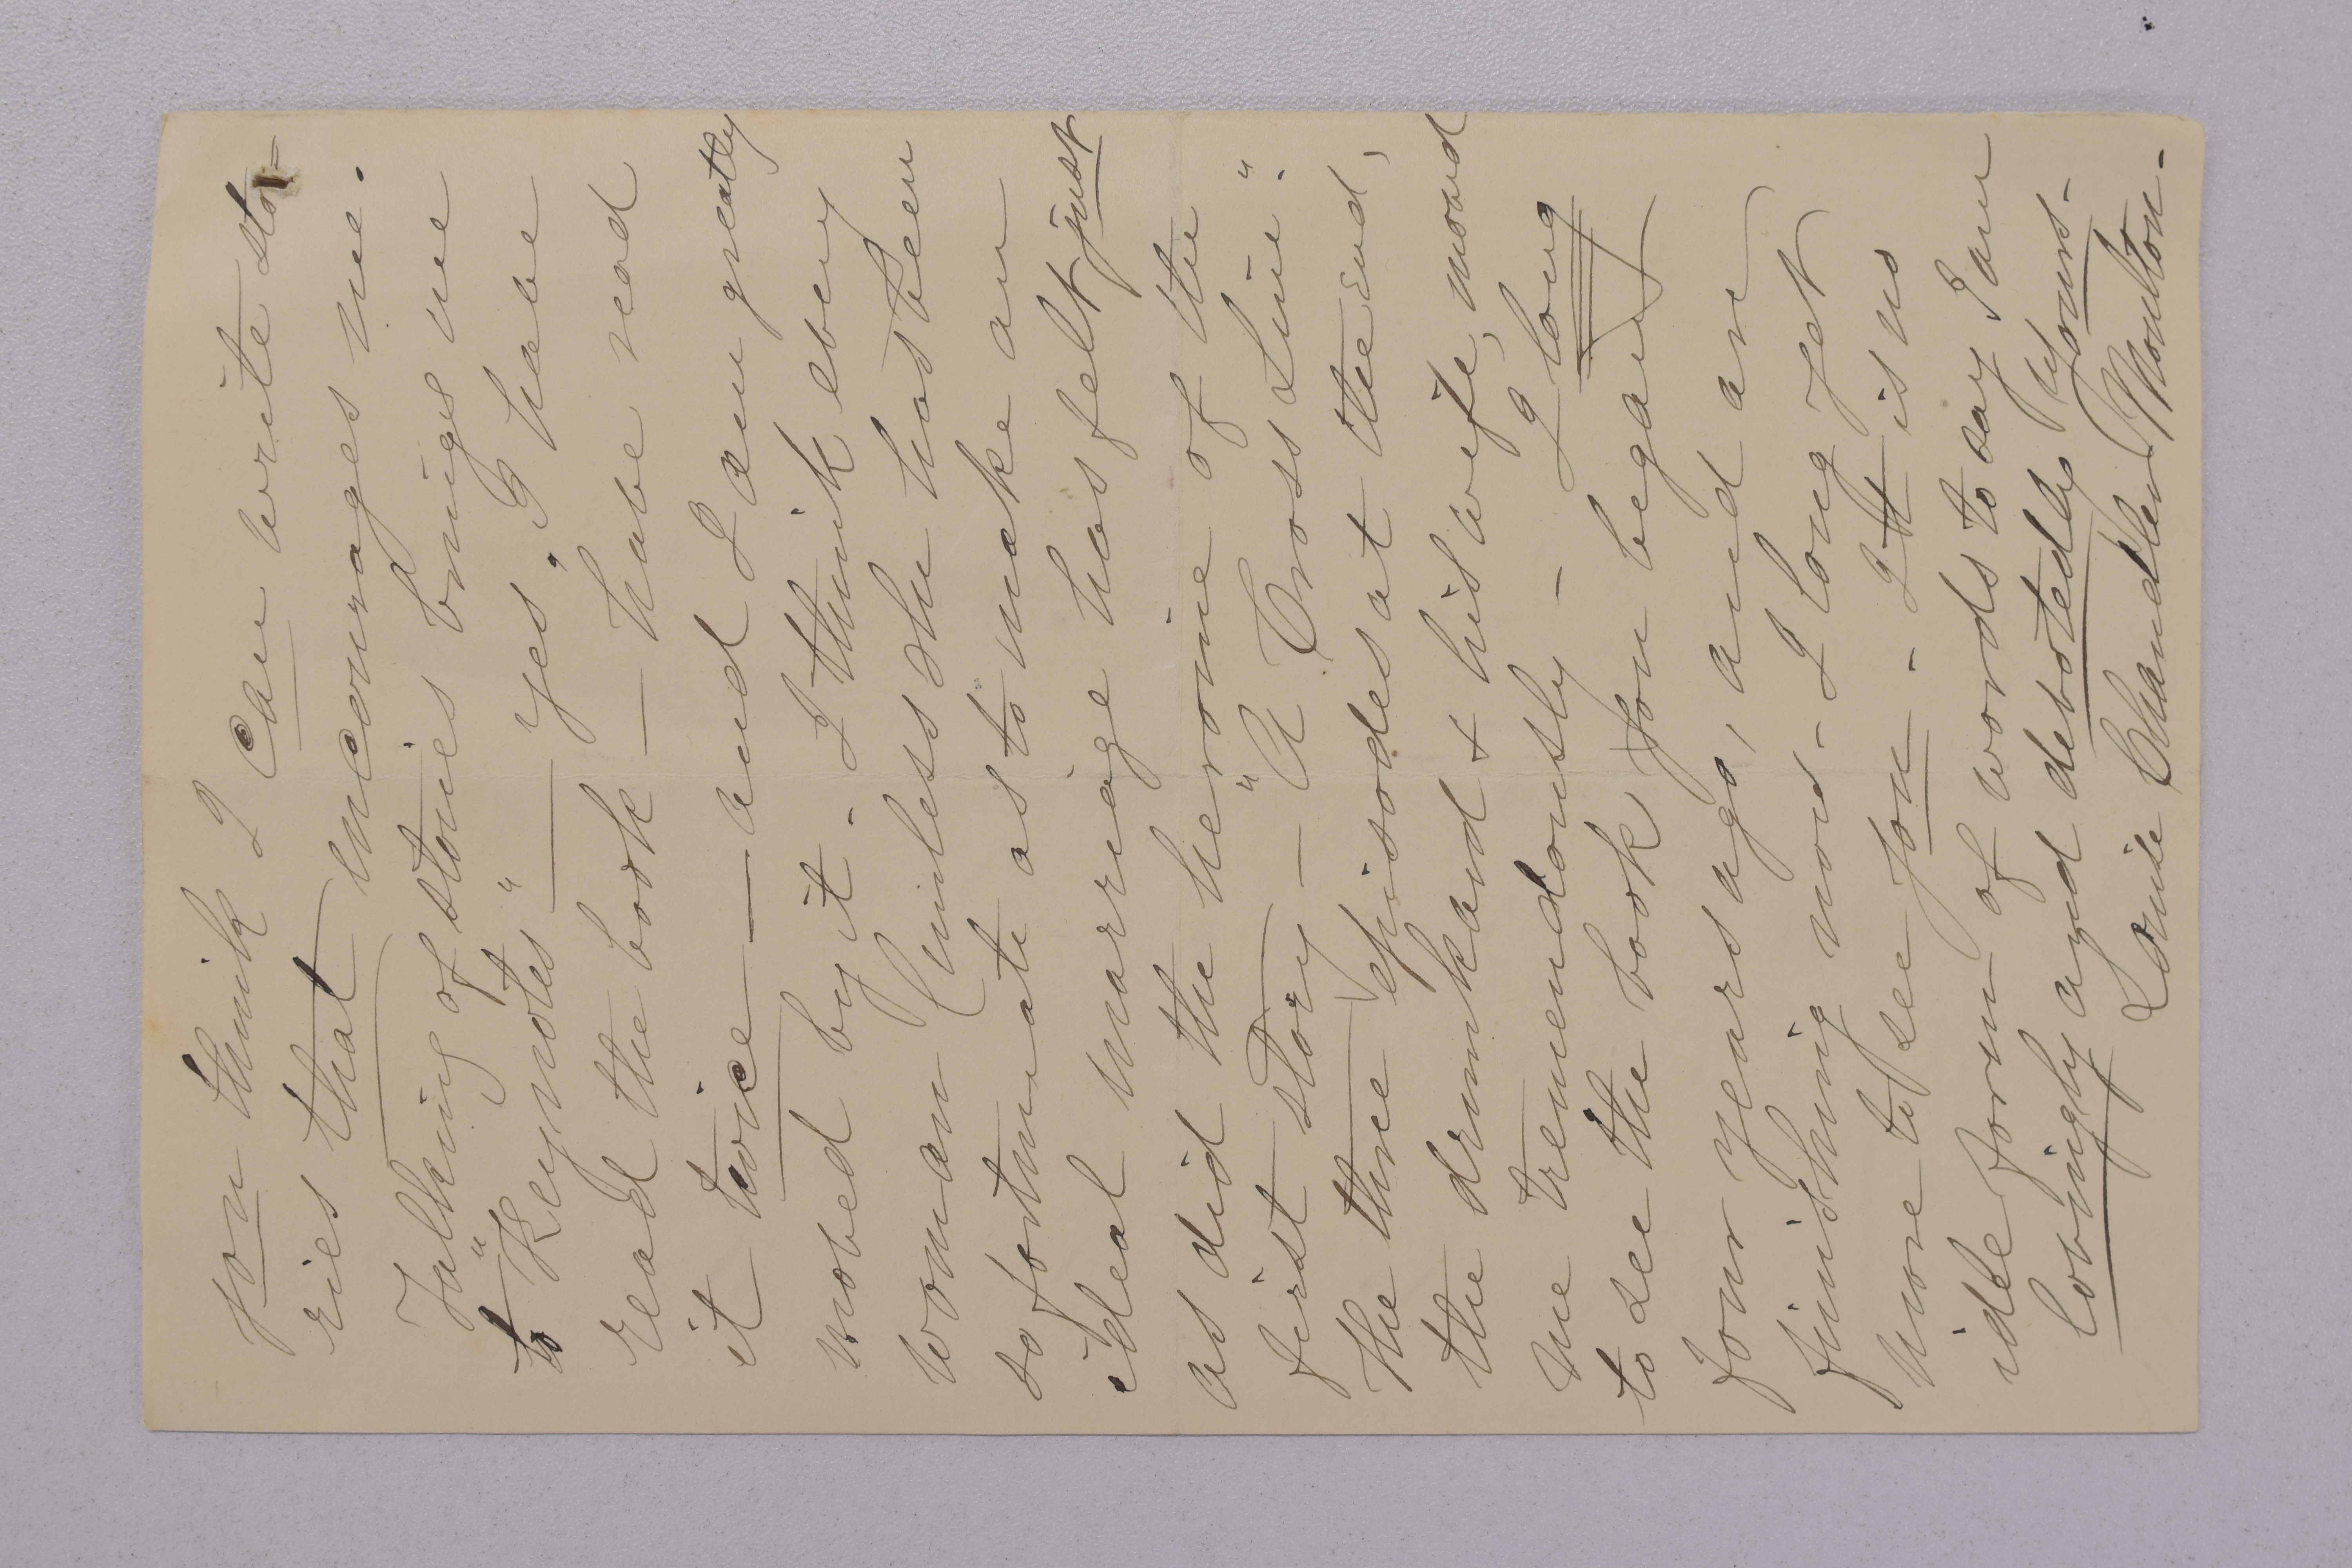 you think I can write sto-
ries that encourages me.
Talking of stories brings me
to "Keynotes" — yes. I have
read the book — have read
it twice — and I am greatly
moved by it. I think every
woman (unless she has been
so fortunate as to make an
ideal marriage has felt just
as did the heroine of the
first story — "A Cross Line".
The three episodes at the end,
the drunkard & his wife, moved
me tremendously — I long
to see the book you began
four years ago, and are
finishing now - I long yet
more to see you - It is no
idle form of words to say I am
lovingly and devotedly yours -
Louise Chandler Moulton -